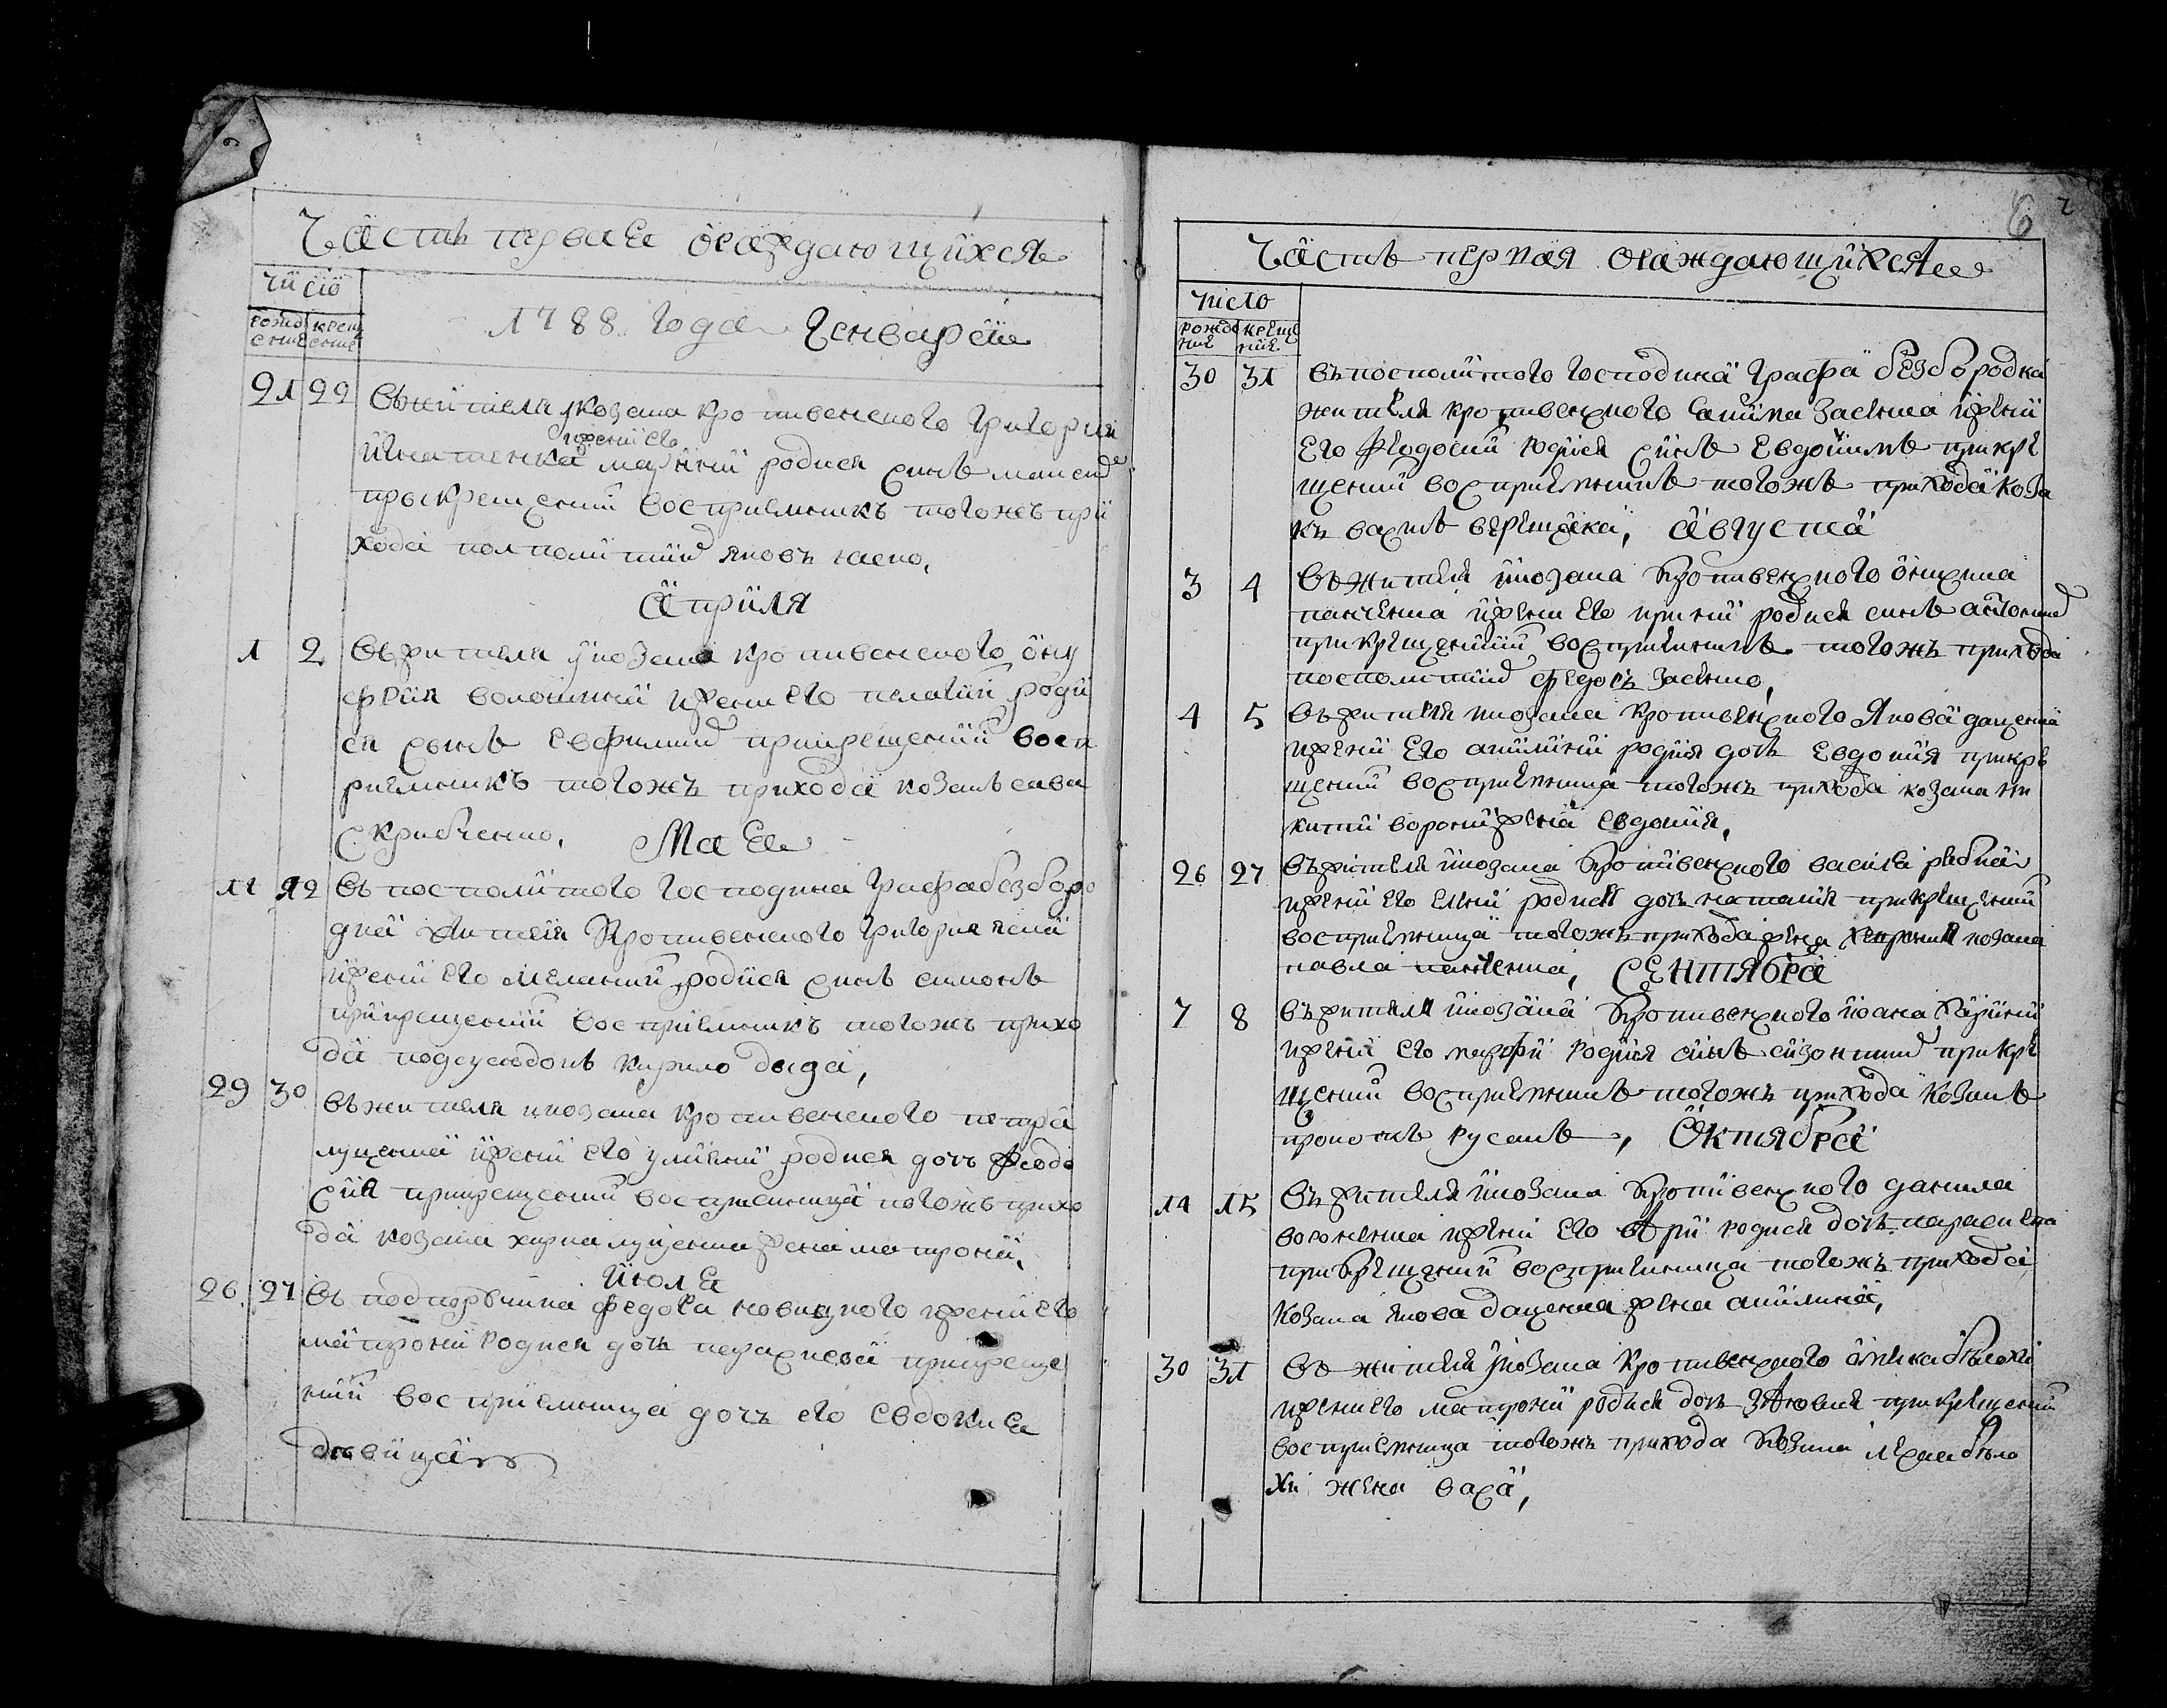 Часть первая ораждающихся
число
рожд крещ
ение ение
1788 года Генваря
21 22 Въ жителя и козака кропивенского Григория
Игнатенка марини родися синъ
жени его
прыкрещении восприемникъ тогожъ при
хода Яковъ
Априля
1 2 Въ жителя и козака кропивенского Ону
фрия волошини и жени его пелагии роди
ся сынъ Евфимий прикрещении восп
риемникъ тогожъ прихода козакъ сава
скрибченко, Мая
11 12 Въ посполитого господина Графа безборо
дка жителя Кропивенского Григория
и жени его Мелании родися синъ симонъ
прикрещении восприемникъ тогожъ прихо
да подсуседокъ кирило дыда,
29 30 Въ жителя и козака кропивенского петра
луценка и жени его улияни родися дочь Феодо
сия прикрещении восприемница тогожъ прихо
да козака луценка жена матрона,
Июля
26 27 Въ подпорутчика федора новицкого и жени его
матрони родися дочь параскева прикреще
нии восприемница дочь его Евдокия
дѣвица
6
Часть первая ораждающихся
число
рожде креще
ние ние
30 31 Въ посполитого господина Графа безбородка
жителя кропивенского засенка и жени
его Феодосии родися синъ Евдокимъ прикре
щении восприемникъ тогожъ прихода коза
къ верещака, Августа
3 4 Въ жителя и козака Кропивенского
панченка и жени его ирини родися синъ
прикрещении восприемникъ тогожъ прихода
посполитий федосъ засенко,
4 5 Въ жителя и козака кропивенского Якова даценка
и жени его акилини родися дочь Евдокия прикре
щении восприемница тогожъ прихода козака ни
кити жена евдокия,
26 27 Въ жителя и козака Кропивенского василя
и жени его родися дочь наталия прикрещении
восприемница тогожъ прихода жена козака
павла панченка, Сентября
7 8 Въ жителя и козака Кропивенского иоана
и жени его марфи родися синъ прикре
щении восприемникъ тогожъ прихода козакъ
прокопъ русакъ, Октября
14 15 Въ жителя и козака Кропивенского данила
и жени его родися дочь параскева
прикрещении восприемница тогожъ прихода
козака якова даценка жена акилина,
30 31 Въ жителя и козака кропивенского
и жени его матрони родися дочь прикрещении
восприемница тогожъ прихода козака бѣло
хи жена васа,